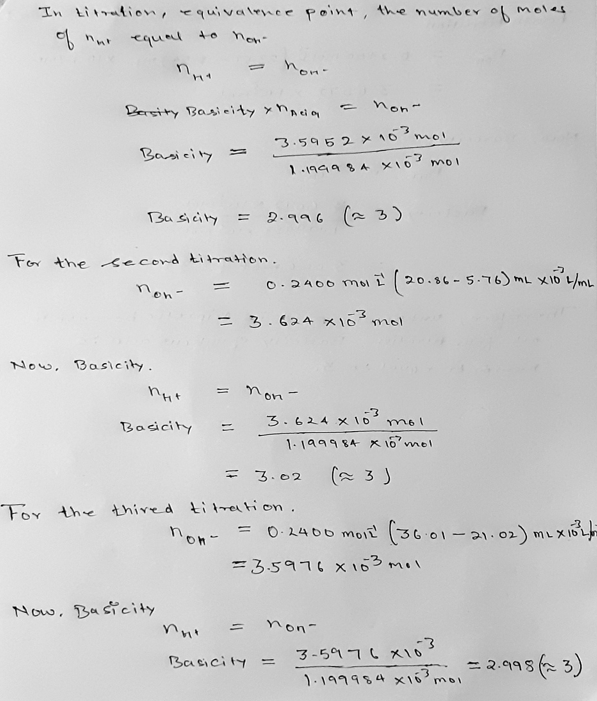 In titration, equivalence point, the number of moles
of nH+ equal to nOH-
nH+ = nOH-
Basicity × nAcid = nOH-
Basicity = 3.5952 × 10⁻³ mol / 1.199984 × 10⁻³ mol
Basicity = 2.996 (≈ 3)
For the second titration.
nOH- = 0.2400 mol L⁻¹ (20.86 - 5.76) mL × 10⁻³ L/mL
= 3.624 × 10⁻³ mol
Now, Basicity.
nH+ = nOH-
Basicity = 3.624 × 10⁻³ mol / 1.199984 × 10⁻³ mol
= 3.02 (≈ 3)
For the thired titration.
nOH- = 0.2400 mol L⁻¹ (36.01 - 21.02) mL × 10⁻³ L/m
= 3.5976 × 10⁻³ mol
Now, Basicity
nH+ = nOH-
Basicity = 3.5976 × 10⁻³ / 1.199984 × 10⁻³ mol = 2.998 (≈ 3)